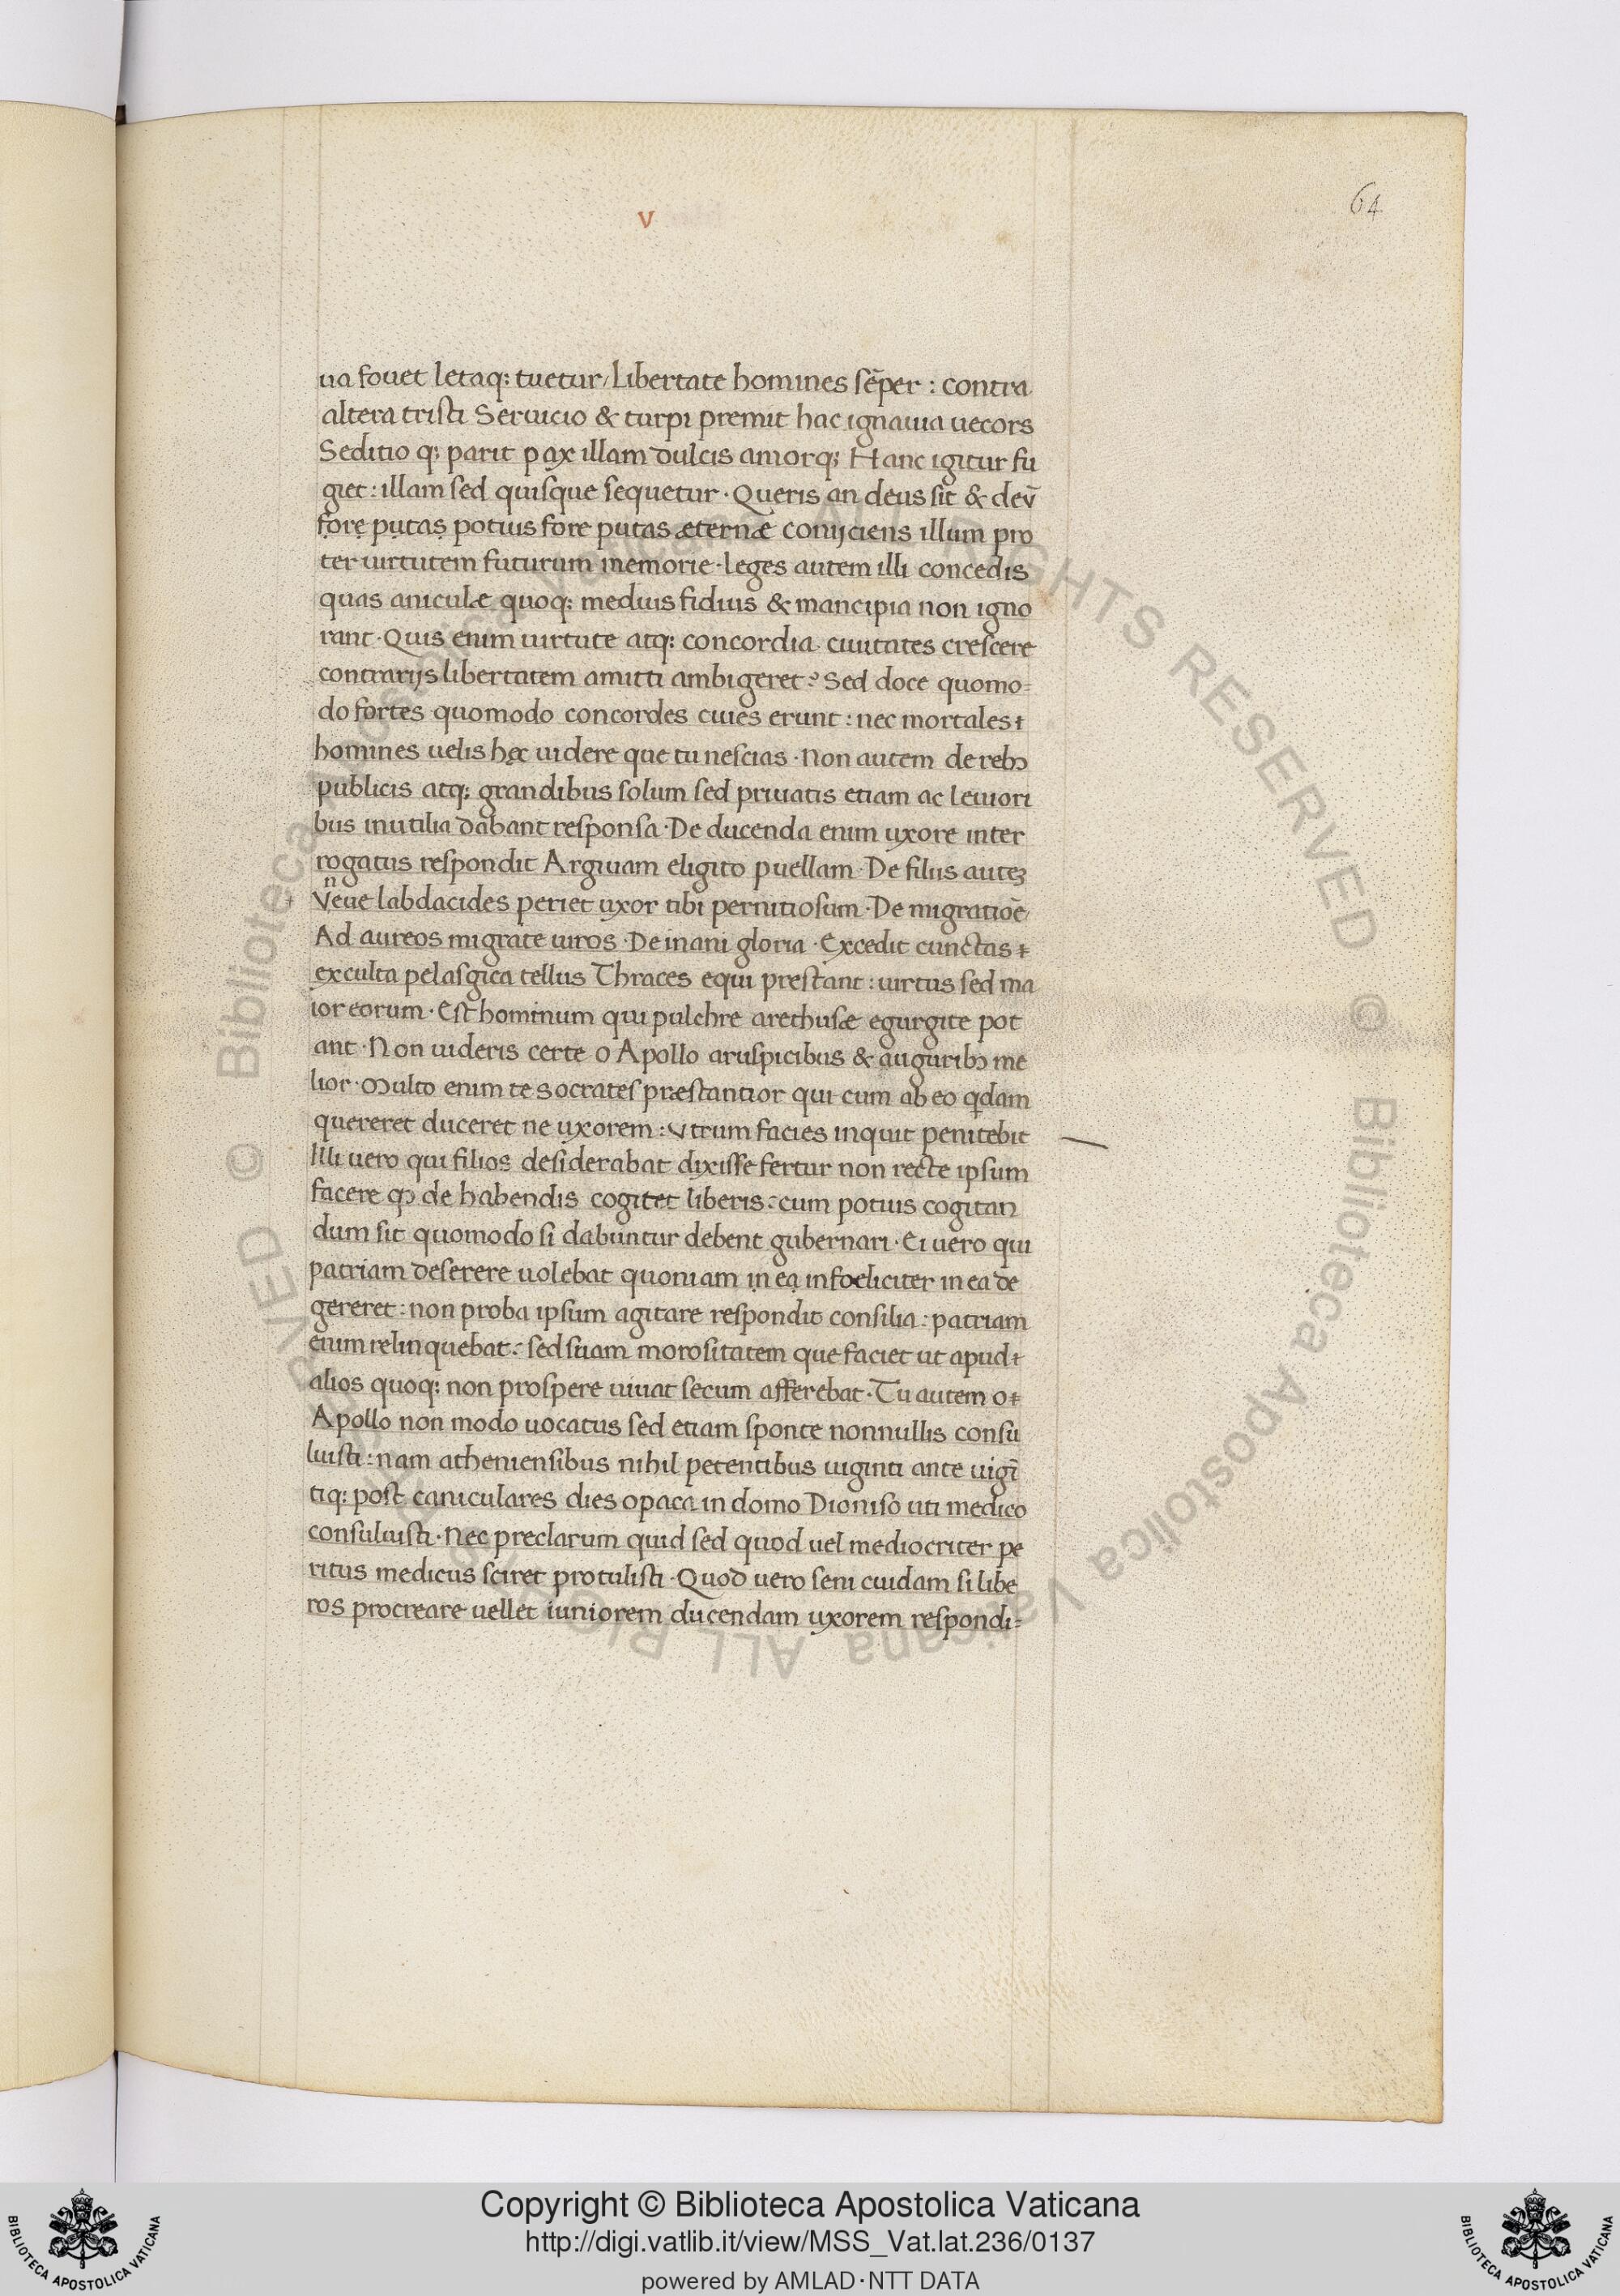 V
64
ua fouet letaq: tuetur / Libertate homines sēper : contra
altera tristi Seruicio & turpi premit hac ignauia uecors
Seditio q; parit pax illam dulcis amorq; Hanc igitur fu
giet : illam sed quisque sequetur · Queris an deus sit & dev̄
fore putas potius fore putas æternæ conijciens illum pro
ter uirtutem futurum memorie · leges autem illi concedis
quas aniculæ quoq: medius fidius & mancipia non igno
rant · Quis enim uirtute atq: concordia ciuitates crescere
contrarijs libertatem amitti ambigeret? Sed doce quomo=
do fortes quomodo concordes ciues erunt : nec mortales
homines uelis hęc uidere que tu nescias · Non autem de rebꝫ
publicis atq: grandibus solum sed priuatis etiam ac leuiori
bus inutilia dabant responsa · De ducenda enim uxore inter
rogatus respondit Argiuam eligito puellam · De filiis auteꝫ
n
Veue labdacides periet uxor tibi pernitiosum · De migratiōe /
Ad aureos migrate uiros · De inani gloria · Excedit cunctas
exculta pelasgica tellus Thraces equi prestant : uirtus sed ma
ior eorum · Est hominum qui pulchre arethusæ egurgite pot
ant · Non uideris certe o Apollo aruspicibus & auguribꝫ me
lior · Multo enim te socrates præstantior qui cum ab eo qdam
quereret duceret ne uxorem : Vtrum facies inquit penitebit
Illi uero qui filios desiderabat dixisse fertur non recte ipsum
facere qꝫ de habendis cogitet liberis : cum potius cogitan
dum sit quomodo si dabuntur debent gubernari · Ei uero qui
patriam deserere uolebat quoniam in ea infoeliciter in ea de
gereret : non proba ipsum agitare respondit consilia : patriam
enim relinquebat : sed suam morositatem que faciet ut apud
alios quoq: non prospere uiuat secum afferebat · Tu autem o
Apollo non modo uocatus sed etiam sponte nonnullis consu
luisti : nam atheniensibus nihil petentibus uiginti ante uigī
tiq: post caniculares dies opaca in domo Dioniso uti medico
consuluisti · Nec preclarum quid sed quod uel mediocriter pe
ritus medicus sciret protulisti · Quod uero seni cuidam si libe
ros procreare uellet iuniorem ducendam uxorem respondi=
© Biblioteca Apostolica Vaticana ALL RIGHTS RESERVED © Biblioteca Apostolica Vaticana ALL RIGHTS RESERVED
Copyright © Biblioteca Apostolica Vaticana
http://digi.vatlib.it/view/MSS_Vat.lat.236/0137
powered by AMLAD·NTT DATA
BIBLIOTECA APOSTOLICA VATICANA
BIBLIOTECA APOSTOLICA VATICANA